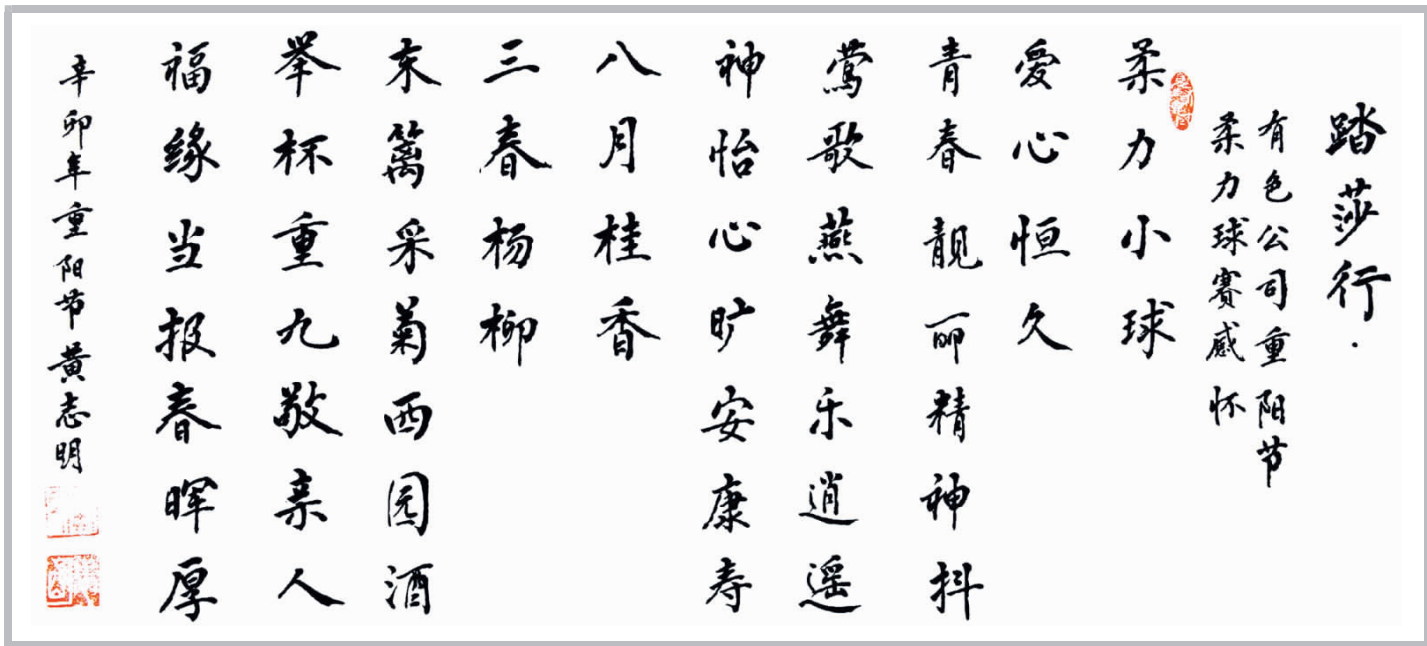 踏莎行·
有色公司重阳节
柔力球赛感怀
柔力小球
爱心恒久
青春靓丽精神抖
莺歌燕舞乐逍遥
神怡心旷安康寿
八月桂香
三春杨柳
东篱采菊西园酒
举杯重九敬亲人
福缘当报春晖厚
辛卯年重阳节黄志明